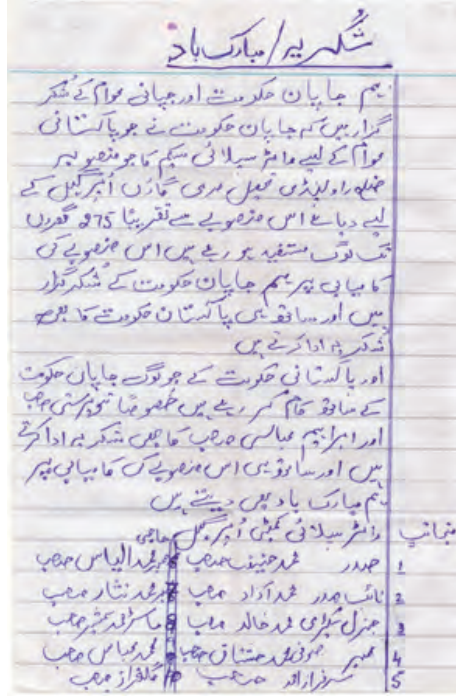 شکریہ/مبارک باد
ہم جاپان حکومت اور جپانی عوام کے شکر
گزار ہیں کہ جاپان حکومت نے جو پاکستانی
عوام کے لیے واٹر سپلائی سکیم کا جو منصوبہ
ضلع راولپنڈی تحصیل مری گاؤں اُپر گہل کے
لیے دیا ہے اس منصوبے سے تقریبا 275 گھروں
تک لوگ مستفید ہو رہے ہیں اس منصوبے کی
کامیابی پر ہم جاپان حکومت کے شکر گزار
ہیں اور ساتھ ہی پاکستان حکومت کا بھی
شکریہ ادا کرتے ہیں
اور پاکستانی حکومت کے جو لوگ جاپان حکومت
کے ساتھ کام کر رہے ہیں خصوصا صحب
اور ابراہیم عباسی صحب کا بھی شکریہ ادا کرتے
ہیں اور ساتھ ہی اس منصوبے کی کامیابی پر
ہم مبارک باد بھی دیتے ہیں
منجانب واٹر سپلائی کمیٹی اُپر گہل
1 صدر محمد حنیف صحب 6 حاجی محمد الیاس صحب
2 نائب صدر محمد آزاد صحب 7 محمد نثار صحب
3 جنرل سیکٹری محمد خالد صحب 8 ماسٹر محمد صحب
4 ممبر صوفی محمد مشتاق صحب 9 محمد عباس صحب
5 سرفراز صحب 10 گلفراز صحب